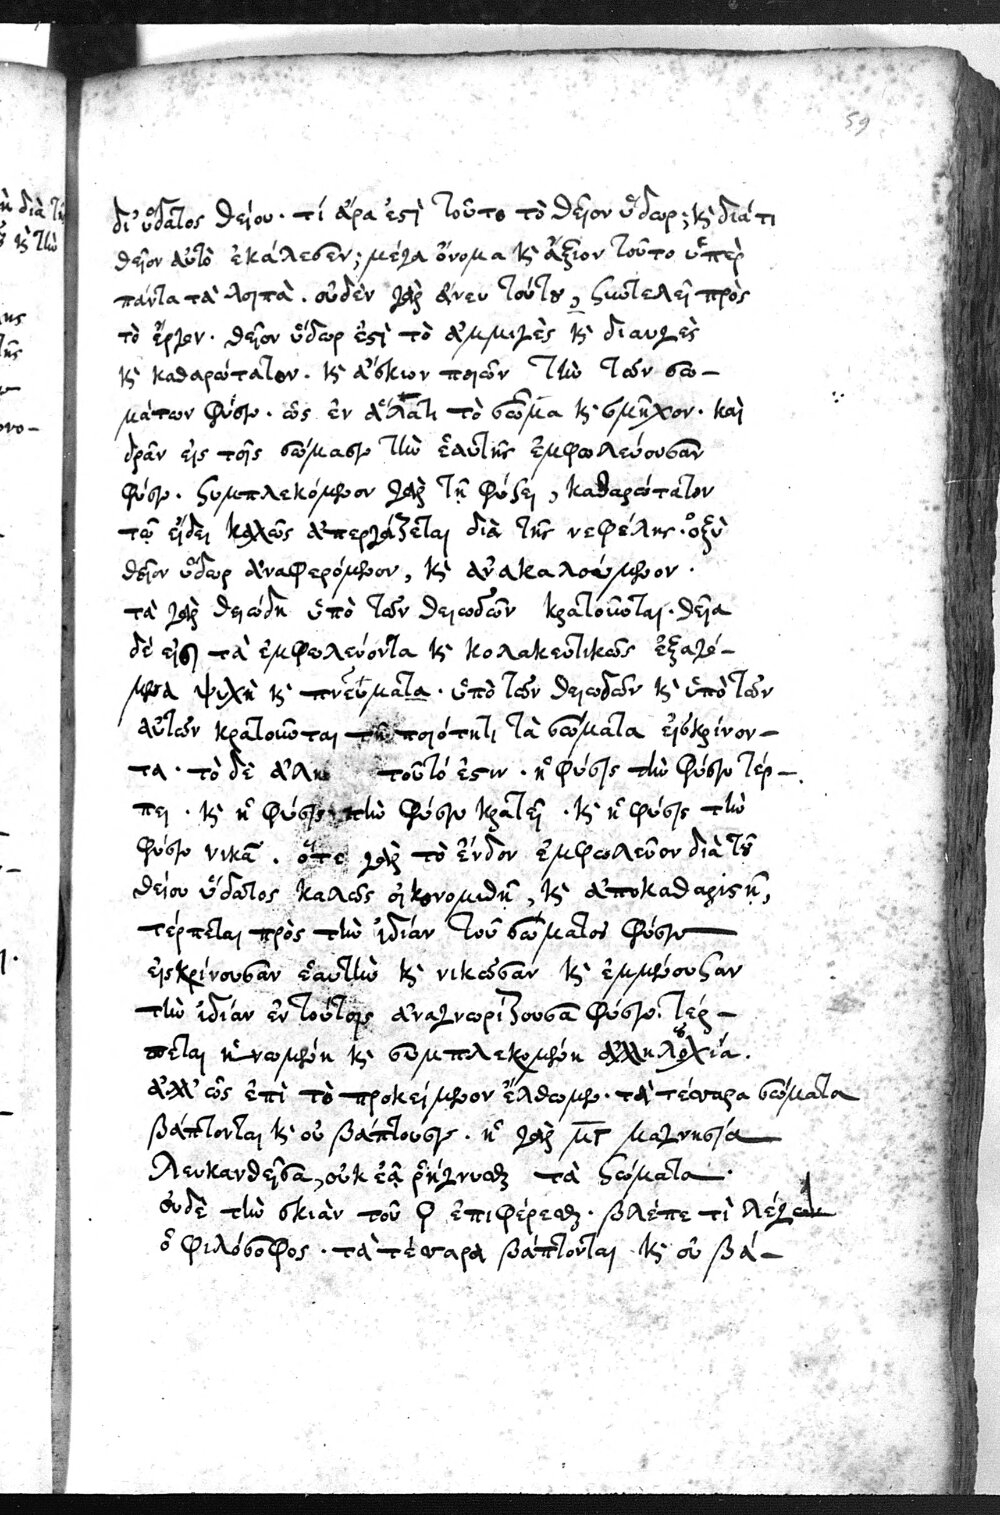 59
δι' ὕδατος θείου. τί ἄρα ἐστὶ τοῦτο τὸ θεῖον ὕδωρ; κ̀ διάτι
θεῖον αὐτὸ ἐκάλεσεν; μέγα ὄνομα κ̀ ἄξιον τοῦτο ὑπὲρ
πάντα τὰ λοιπὰ. οὐδὲν γὰρ ἄνευ τούτου, συντελεῖ πρὸς
τὸ ἔργον. θεῖον ὕδωρ ἐστὶ τὸ ἀμμιγὲς κ̀ διαυγὲς
κ̀ καθαρώτατον. κ̀ ἀσκίων ποιῶν τὴν τῶν σω-
μάτων φύσιν. ὡς ἐν ἅλατι τὸ σῶμα κ̀ σμῆχον. καὶ
δρᾶν εἰς τοῖς σώμασιν τὴν ἑαυτῆς ἐμφωλεύουσαν
φύσιν. συμπλεκόμενον γὰρ τῇ φύσει, καθαρώτατον
τῷ εἴδει καλῶς ἀπεργάζεται διὰ τῆς νεφέλης. ὀξὺ
θεῖον ὕδωρ ἀναφερόμενον, κ̀ ἀνακαλούμενον.
τὰ γὰρ θειώδη ὑπὸ τῶν θειωδῶν κρατοῦνται. θεῖα
δέ εἰσι τὰ ἐμφωλεύοντα κ̀ κολακευτικῶς ἐξαγό-
μενα ψυχὴ κ̀ πνεύματα. ὑπὸ τῶν θειωδῶν κ̀ ὑπὸ τῶν
αὐτῶν κρατοῦνται τῇ ποιότητι τὰ σώματα εἰσκρίνον-
τα. τὸ δὲ τοῦτό ἐστιν. ἡ φύσις τὴν φύσιν τέρ-
πει. κ̀ ἡ φύσις τὴν φύσιν κρατεῖ. κ̀ ἡ φύσις τὴν
φύσιν νικᾶ. ὅτε γὰρ τὸ ἔνδον ἐμφωλεῦον διὰ τοῦ
θείου ὕδατος καλῶς οἰκονομιθῇ, κ̀ ἀποκαθαρισθῇ,
τέρπεται πρὸς τὴν ἰδίαν τοῦ σώματος φύσιν
εἰσκρίνουσαν ἑαυτὴν κ̀ νικῶσαν κ̀ ἐμμένουσαν
τὴν ἰδίαν ἐν τούτοις ἀναγνωρίζουσα φύσιν. τέρ-
πεται ἡνωμένη κ̀ συμπλεκομένη ἀλληλουχία.
ἀλλ' ὡς ἐπὶ τὸ προκείμενον ἔλθωμεν. τὰ τέσσαρα σώματα
βάπτονται κ̀ οὐ βάπτουσιν. ἡ γὰρ μαγνησία
λευκανθεῖσα, οὐκ ἐᾷ ῥήγνυσθαι τὰ σώματα.
οὐδὲ τὴν σκιὰν τοῦ ϙ ἐπιφέρεσθαι. βλέπε τὶ λέγει
ὁ φιλόσοφος. τὰ τέσσαρα βάπτονται κ̀ οὐ βά-